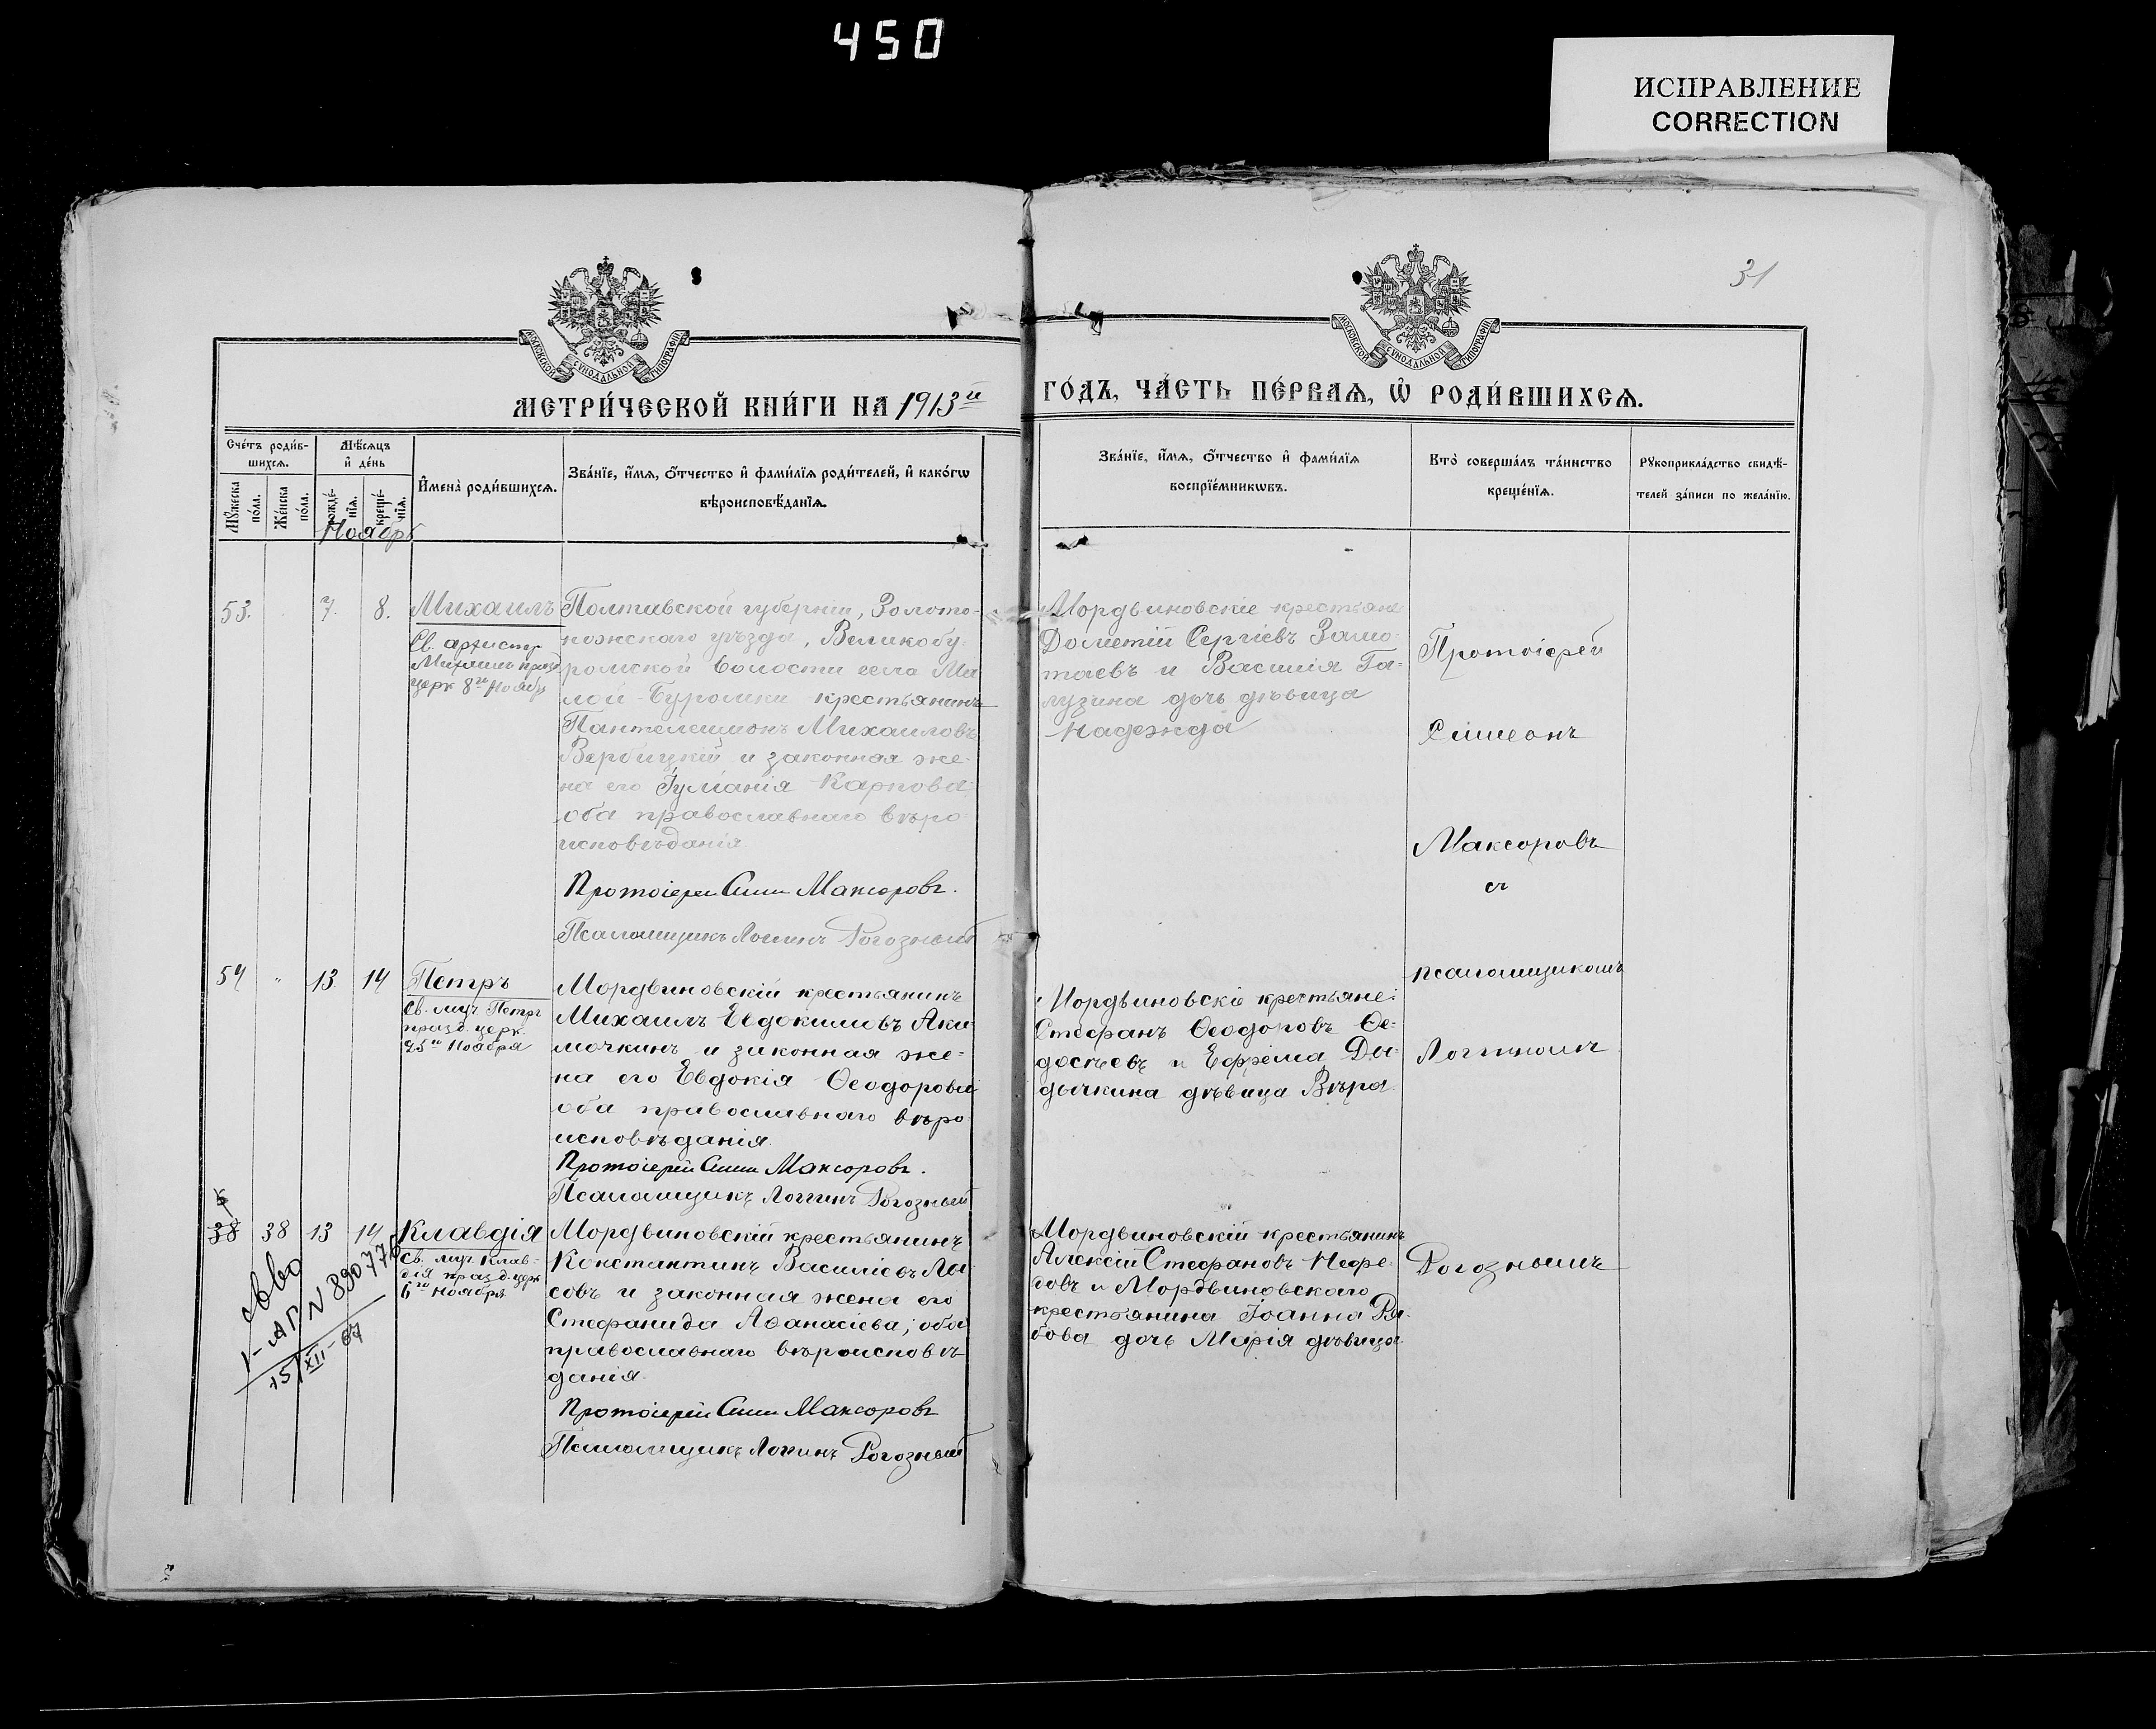 450
ИСПРАВЛЕНИЕ
CORRECTION
31
МОСКОВСКОЙ СУНОДАЛЬНОЙ ТИПОГРАФІИ
МОСКОВСКОЙ СУНОДАЛЬНОЙ ТИПОГРАФІИ
МЕТРИ́ЧЕСКОЙ КНИ́ГИ НА 1913й
ГО́ДЪ, ЧА́СТЬ ПЕ́РВАѦ, Ѡ҆ РОДИ́ВШИХСѦ.
Сче́тъ роди́в-
шихсѧ.
Мѣ́сѧцъ
и҆ де́нь
Мꙋ́жеска по́ла.
Же́нска по́ла.
рожде́-нїѧ.
креще́-нїѧ.
И҆мена̀ роди́вшихсѧ.
Зва́нїе, и҆́мѧ, ѻ҆́тчество и҆ фами́лїѧ роди́телей, и҆ како́гѡ
вѣроисповѣ́данїѧ.
Зва́нїе, и҆́мѧ, ѻ҆́тчество и҆ фами́лїѧ
воспрїе́мникѡвъ.
Кто̀ соверша́лъ та́инство
креще́нїѧ.
Рꙋкоприкла́дство свидѣ́-
телей за́писи по жела́нїю.
Ноябрь
53. 7. 8. Михаилъ
Св. архистр.
Михаилъ празд
церк 8го Ноябр
Полтавской губерніи, Золото-
ножскаго уѣзда, Великобу-
ромской волости села Ма
лой-Буромки крестьянинъ
Пантелеимонъ Михаиловъ
Вербицкій и законная же-
на его Іуліанія Карпова
оба православнаго вѣро-
исповѣданія
Протоіерей Симе Максоровъ.
Псаломщикъ Логгинъ Рогозный
Мордвиновскіе крестьяне
Дометій Сергіевъ Замо-
таевъ и Василія Га-
лузина дочь дѣвица
Надежда
Протоіерей
Симеонъ
Максоровъ
съ
псаломщикомъ
Логгиномъ
Рогознымъ
54 " 13 14 Петръ
Св. муч. Петръ
празд. церк.
25го Ноября
Мордвиновскій крестьянинъ
Михаилъ Евдокимовъ Аки-
мочкинъ и законная же-
на его Евдокія Ѳеодорова
оба православнаго вѣро-
исповѣданія.
Протоіерей Симе Максоровъ.
Псаломщикъ Логгинъ Рогозный
Мордвиновскіе крестьяне:
Стефанъ Ѳеодоровъ Ѳе-
досѣевъ и Ефрема Ды-
дычкина дѣвица Вѣра
38 38 13 14 Клавдія
Св. муч. Клав-
дія празд. церк
6го Ноября
Мордвиновскій крестьянинъ
Константинъ Василіевъ Лы-
совъ и законная жена его
Стефанида Аѳанасіева; оба
православнаго вѣроисповѣ-
данія.
Протоіерей Симе Максоровъ
Псаломщикъ Логгинъ Рогозный
Мордвиновскій крестьянинъ
Алексій Стефановъ Нефе-
довъ и Мордвиновскаго
крестьянина Іоанна Ря-
бова дочь Марія дѣвица.
I-АП N 890776
15/XII-67